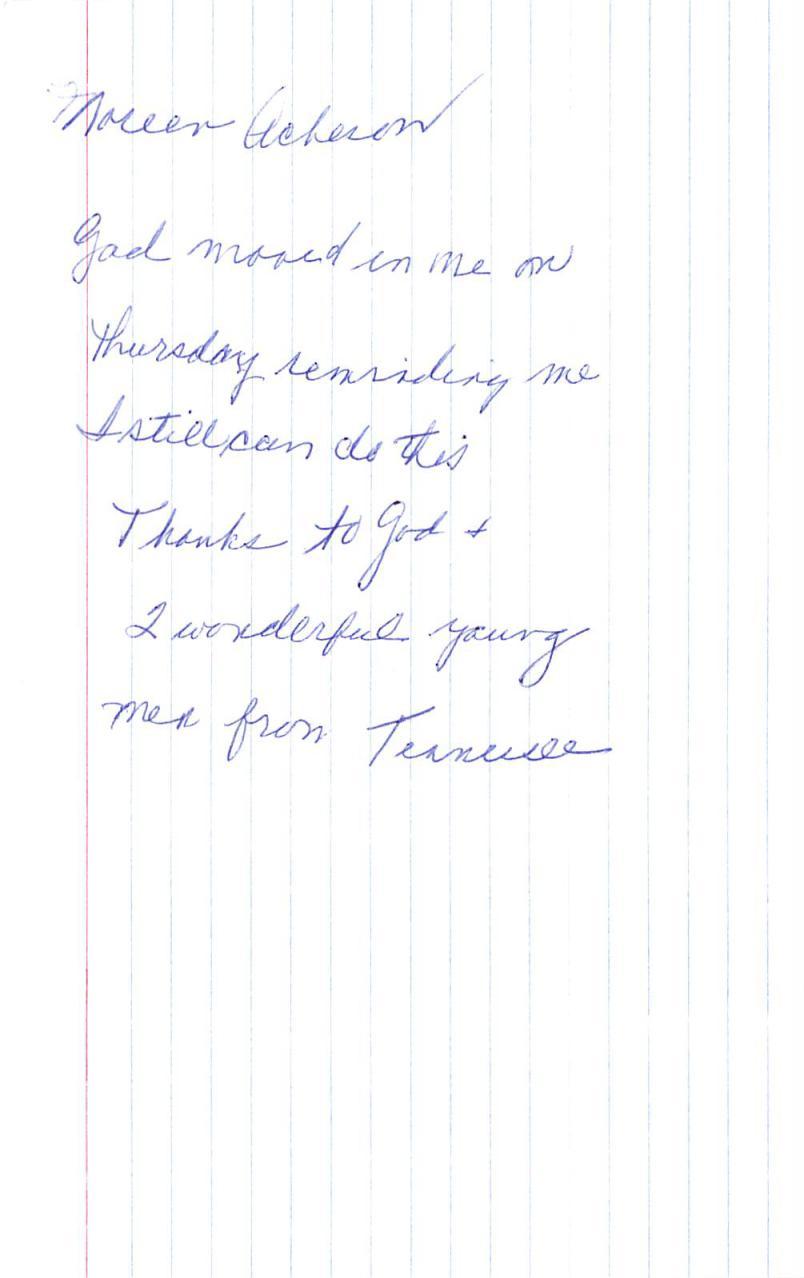 Noreen Acheson
God moved in me on
Thursday reminding me
I still can do this
Thanks to God +
2 wonderful young
men from Tennessee